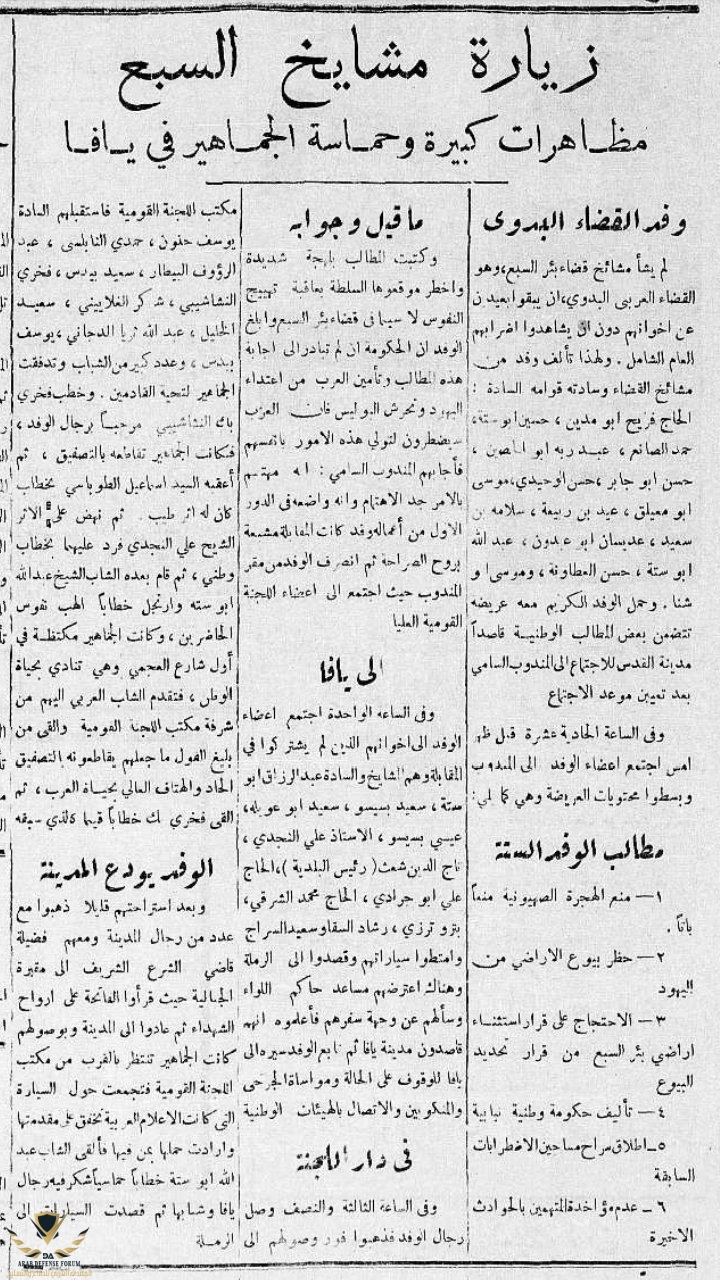 زيارة مشايخ السبع
مظاهرات كبيرة وحماسة الجماهير في يافا
وفد القضاء البدوى
لم يشأ مشائخ قضاء بئر السبع، وهو
القضاء العربى البدوي، ان يبقوا بعيدن
عن اخوانهم دون ان يشاهدوا اضرابهم
العام الشامل . ولهذا تألف وفد من
مشائخ القضاء وسادته قوامه السادة :
الحاج فريح ابو مدين ، حسين ابو ستة،
حمد الصانع ، عبد ربه ابو الحصين ،
حسن ابو جابر ، حسن الوحيدي، موسى
ابو معيلق ، عيد بن ربيعة ، سلامه بن
سعيد ، عديسان ابو عبدون ، عبد الله
ابو ستة ، حسن العطاونة ، وموسى ا و
شنا . وحمل الوفد الكريم معه عريضه
تتضمن بعض المطالب الوطنية قاصداً
مدينة القدس للاجتماع الى المندوب السامي
بعد تعيين موعد الاجتماع
وفى الساعة الحادية عشرة قبل ظهر
امس اجتمع اعضاء الوفد الى المندوب
وبسطوا محتويات العريضة وهي كما يلي:
مطالب الوفد الستة
١— منع الهجرة الصهيونية منعاً
باتاً .
٢— حظر بيوع الاراضي من
اليهود
٣— الاحتجاج على قرار استثناء
اراضي بئر السبع من قرار تحديد
البيوع
٤— تأليف حكومة وطنية نيابية
٥— اطلاق سراح مساجين الاضطرابات
السابقة
٦— عدم مؤاخدة المتهمين بالحوادث
الاخيرة
ما قيل وجوابه
وكتبت المطالب بلهجة شديدة
واخطر موقعوها السلطة بعاقبة تهييج
النفوس لا سيما في قضاء بئر السبع وابلغ
الوفد ان الحكومة ان لم تبادر الى اجابه
هذه المطالب وتأمين العرب من اعتداء
اليهود وتحرش البوليس فان العرب
سيضطرون لتولي هذه الامور بانفسهم
فأجابهم المندوب السامي : انه مهتم
بالامر جد الاهتمام وانه واضعه في الدور
الاول من أعماله وقد كانت المقابلة مشبعة
بروح الصراحة ثم انصرف الوفد من مقر
المندوب حيث اجتمع الى اعضاء اللجنة
القومية العليا
الى يافا
وفى الساعه الواحدة اجتمع اعضاء
الوفد الى اخوانهم الذين لم يشتركوا في
المقابلة وهم الشايخ والسادة عبد الرزاق ابو
ستة ، سعيد بسيسو ، سعيد ابو عويله،
عيسى بسيسو ، الاستاذ علي النجدي ،
تاج الدين شعث ( رئيس البلدية )، الحاج
علي ابو جرادي ، الحاج محمد الشرفي،
بترو ترزي ، رشاد السقا وسعيد السراج
وامتطوا سياراتهم وقصدوا الى الرملة
وهناك اعترضهم مساعد حاكم اللواء
وسألهم عن وجهة سفرهم فأعلموه انهم
قاصدون مدينة يافا ثم تابع الوفد سيره الى
يافا للوقوف على الحالة ومواساة الجرحى
والمنكوبين والاتصال بالهيئات الوطنية
فى دار اللجنة
وفى الساعة الثالثة والنصف وصل
رجال الوفد فذهبوا فور وصولهم الى
مكتب اللجنة القومية فاستقبلهم السادة
يوسف حنون ، حمدي النابلسى ، عبد
الرؤوف البيطار ، سعيد بيدس ، فخري
النشاشيبي ، شكر الغلاييني ، سعيد
الخليل ، عبد الله ثريا الدجاني ، يوسف
بيدس ، وعدد كبير من الشباب وتدفقت
الجماهير لتحية القادمين . وخطب فخري
بك النشاشيبي مرحباً برجال الوفد ،
فكانت الجماهير تقاطعه بالتصفيق ، ثم
أعقبه السيد اسماعيل الطوباسي بخطاب
كان له اثر طيب . ثم نهض على الاثر
الشيخ علي النجدي فرد عليهما بخطاب
وطني ، ثم قام بعده الشاب الشيخ عبد الله
ابو سته وارتجل خطاباً الهب نفوس
الحاضرين ، وكانت الجماهير مكتظة في
أول شارع العجمي وهي تنادي بحياة
الوطن ، فتقدم الشاب العربي اليهم من
شرفة مكتب اللجنة القومية والقى من
بليغ القول ما جعلهم يقاطعونه بالتصفيق
الحاد والهتاف العالي بحياة العرب ، ثم
القى فخري بك خطاباً قيما كالذي سبقه
الوفد يودع المدينة
وبعد استراحتهم قليلا ذهبوا مع
عدد من رجال المدينة ومعهم فضيلة
قاضي الشرع الشريف الى مقبرة
الجمالية حيث قرأوا الفاتحة على ارواح
الشهداء ثم عادوا الى المدينة وبوصولهم
كانت الجماهير تنتظر بالقرب من مكتب
اللجنة القومية فتجمعت حول السيارة
التى كانت الاعلام العربية تخفق على مقدمتها
وارادت حملها بمن فيها فألقى الشاب عبد
الله ابو ستة خطاباً حماسياً شكر فيه رجال
يافا وشبابها ثم قصدت السيارات الى
الرملة
DA
ARAB DEFENSE FORUM